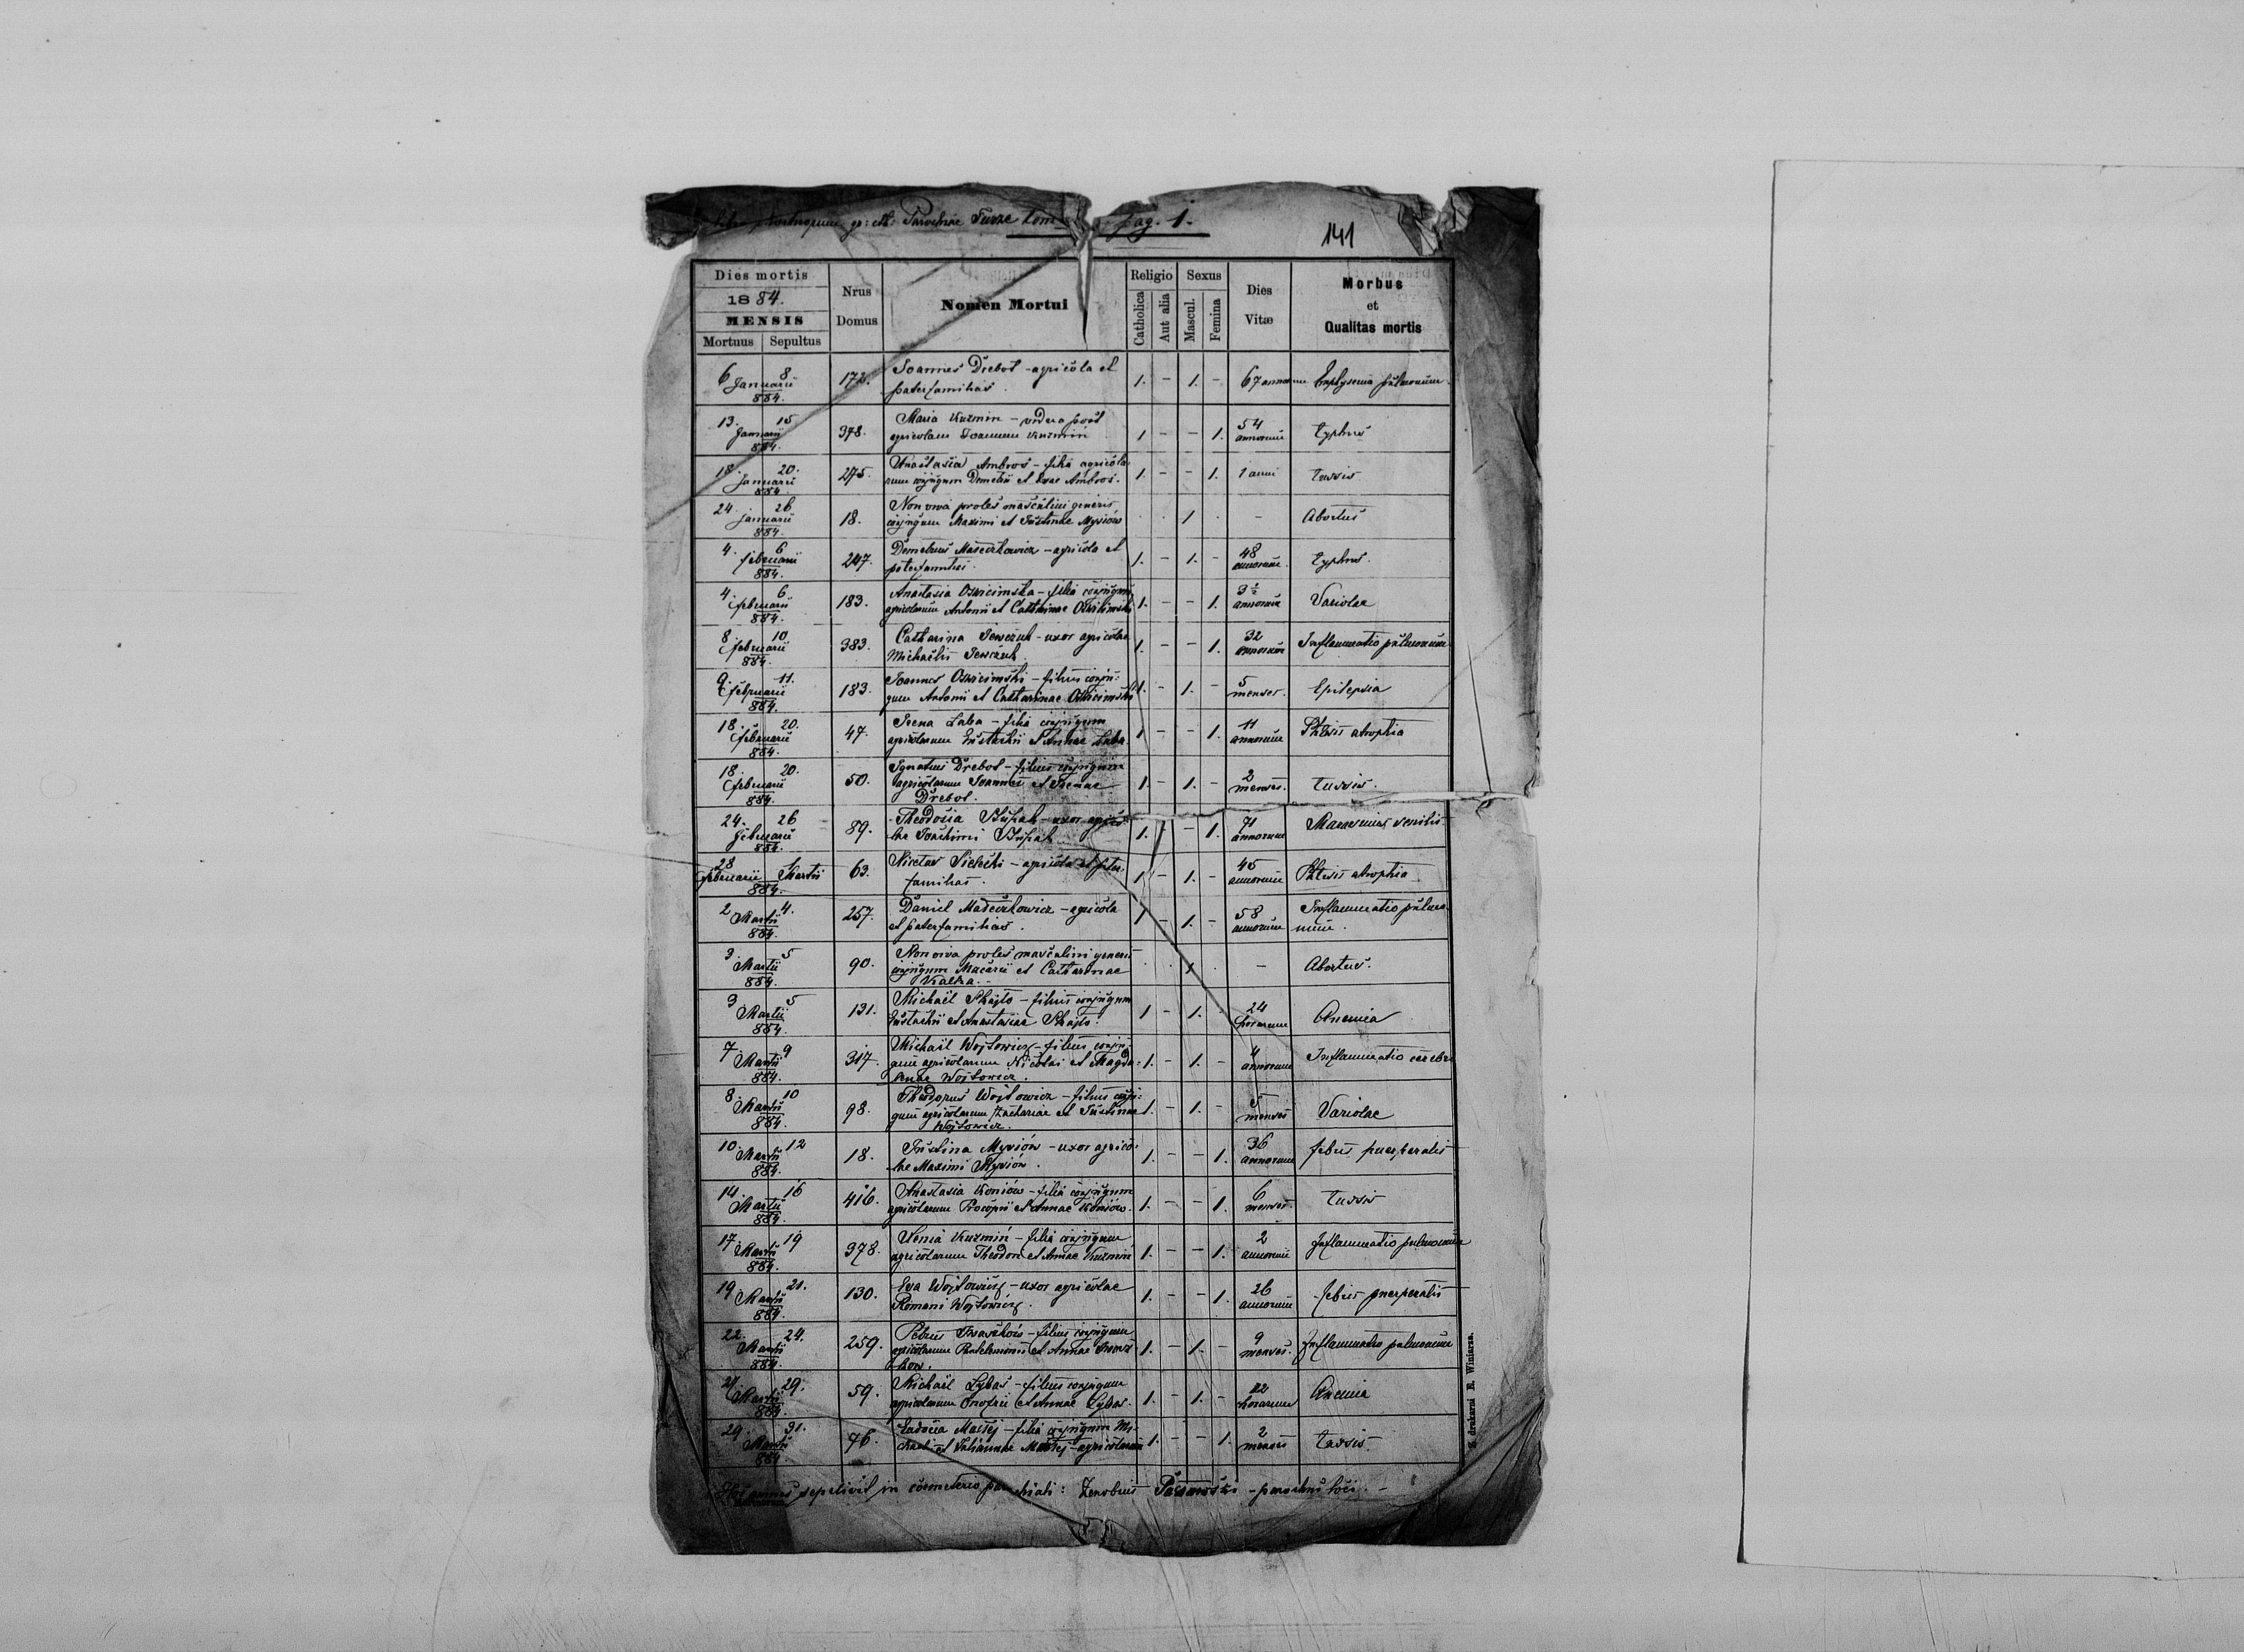 Mortuorum gr: cth: Parochiae Turze Tom pag. 1.
141
Dies mortis
1884.
MENSIS
Mortuus Sepultus
Nrus Domus
Nomen Mortui
Religio
Catholica
Aut alia
Sexus
Mascul.
Femina
Dies Vitæ
Morbus
et
Qualitas mortis
6 8 Januarii 884. 172. Joannes Drebot - agricola et 1. - 1. - 67 annorum Emphysema pulmonum
paterfamilias.
13. 15 Januarii 884. 378. Maria Kuzmin - vidua post 1 - - 1. 54 annorum Typhus
agricolam Joannem Kuzmin
18. 20. Januarii 884 275. Anastasia Ambros - filia agricola- 1. - - 1. 1 anni Tussis
rum conjugum Demetrii et Ambros.
24. 26 Januarii 884. 18. Non viva proles masculini generis . . 1 . - Abortus
conjugum Maximi et Justinae Mysiów
4. 6 februarii 884. 247. Demetrius Maseczkowicz - agricola et 1. - 1. - 48 annorum Typhus.
paterfamilias.
4. 6. februarii 884. 183. Anastasia Oswicimska - filia conjugum 1. - - 1. 3½ annorum Variolae
agricolarum Antonii et Catharinae Oswicimski
8. 10 februarii 884. 383. Catharina Sewczuk - uxor agricolae 1. - - 1. 32 annorum Inflammatio pulmonum
Michaelis Sewczuk
9. 11. februarii 884. 183. Joannes Oswicimski - filius conju- 1. - 1. - 5 menses. Epilepsia
gum Antonii et Catharinae Oswicimski
18. 20. februarii 884. 47. Irena Laba - filia conjugum 1 - - 1. 11 annorum Phtisis atrophia
agricolarum Eustachii et Annae Laba.
18. 20. februarii 884. 50. Ignatius Drebot - filius conjugum 1 - 1. - 2 menses. Tussis.
agricolarum Joannis et Irenae
Drebot.
24. 26 februarii 884. 89. Theodosia - uxor agrico- 1. - - 1. 71 annorum Marasmus senilis
lae Joachimi
28 februarii Martii 884. 63. Nicetas Sielecki - agricola et pater- 1 - 1. - 45 annorum Phtisis atrophia
familias.
2 4. Martii 884. 257. Daniel Maseczkowicz - agricola 1 - 1. - 58 annorum Inflammatio pulmo-
et paterfamilias. num.
3. 5 Martii 884. 90. Non viva proles masculini generis . . 1 . - Abortus.
conjugum Macarii et Catharinae
Kalka.
3 5 Martii 884. 131. Michaël - filius conjugum 1 - 1. - 24 horarum Anemia
Eustachii et Anastasiae
7 9 Martii 884. 317. Michaël Wojtowicz - filius conju- 1. - 1. - 4 annorum Inflammatio cerebri
gum agricolarum Nicolai et Magda-
lenae Wojtowicz.
8. 10 Martii 884. 98. Theodorus Wojtowicz - filius conju- 1. - 1. - 5 menses Variolae
gum agricolarum Zachariae et Justinae
Wojtowicz.
10. 12 Martii 884. 18. Justina Mysiów - uxor agrico- 1. - - 1. 36 annorum febris puerperalis
lae Maximi Mysiów.
14. 16 Martii 884. 416. Anastasia Koniów - filia conjugum 1. - - 1. 6 menses. Tussis
agricolarum Procopii et Annae Koniów.
17. 19 Martii 884. 378. Xenia Kuzmin - filia conjugum 1. - - 1. 2 annorum Inflammatio pulmonum
agricolarum Theodori et Annae Kuzmin
19 21. Martii 884. 130. Eva Wojtowicz - uxor agricolae 1. - - 1. 26 annorum febris puerperalis
Romani Wojtowicz.
22. 24. Martii 884. 259. Petrus Iwaszków - filius conjugum 1. - 1. - 9 menses. Inflammatio pulmonum
agricolarum Pantelemonis et Annae Iwasz-
ków.
27. 29. Martii 884. 59. Michaël Lybas - filius conjugum 1. - 1. - 12 horarum Anemia
agricolarum Onofrii et Annae Lybas.
29. 31. Martii 884. 76. Eudocia Maciej - filia conjugum Mi- 1. - - 1. 2 menses Tussis
chaeli et Juliannae Maciej - agricolarum
sepelivit in coemeterio parochiali: Zenobius - parochus loci.-
Z drukarni E. Winiarza.